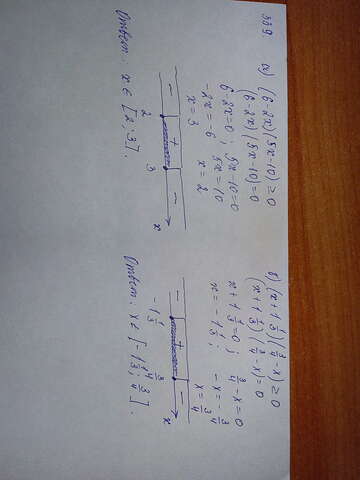 339. а) (6-2x)(5x-10) ≥ 0
(6-2x)(5x-10)=0
6-2x=0 ; 5x-10=0
-2x=-6 5x=10
x=3 x=2
- + -
2 3 x
Ответ: x ∈ [2;3].
б) (x+1 1/3)(3/4-x) ≥ 0
(x+1 1/3)(3/4-x)=0
x+1 1/3=0; 3/4-x=0
x=-1 1/3; -x=-3/4
x=3/4
- + -
-1 1/3 3/4 x
Ответ: x ∈ [-1 1/3; 3/4].